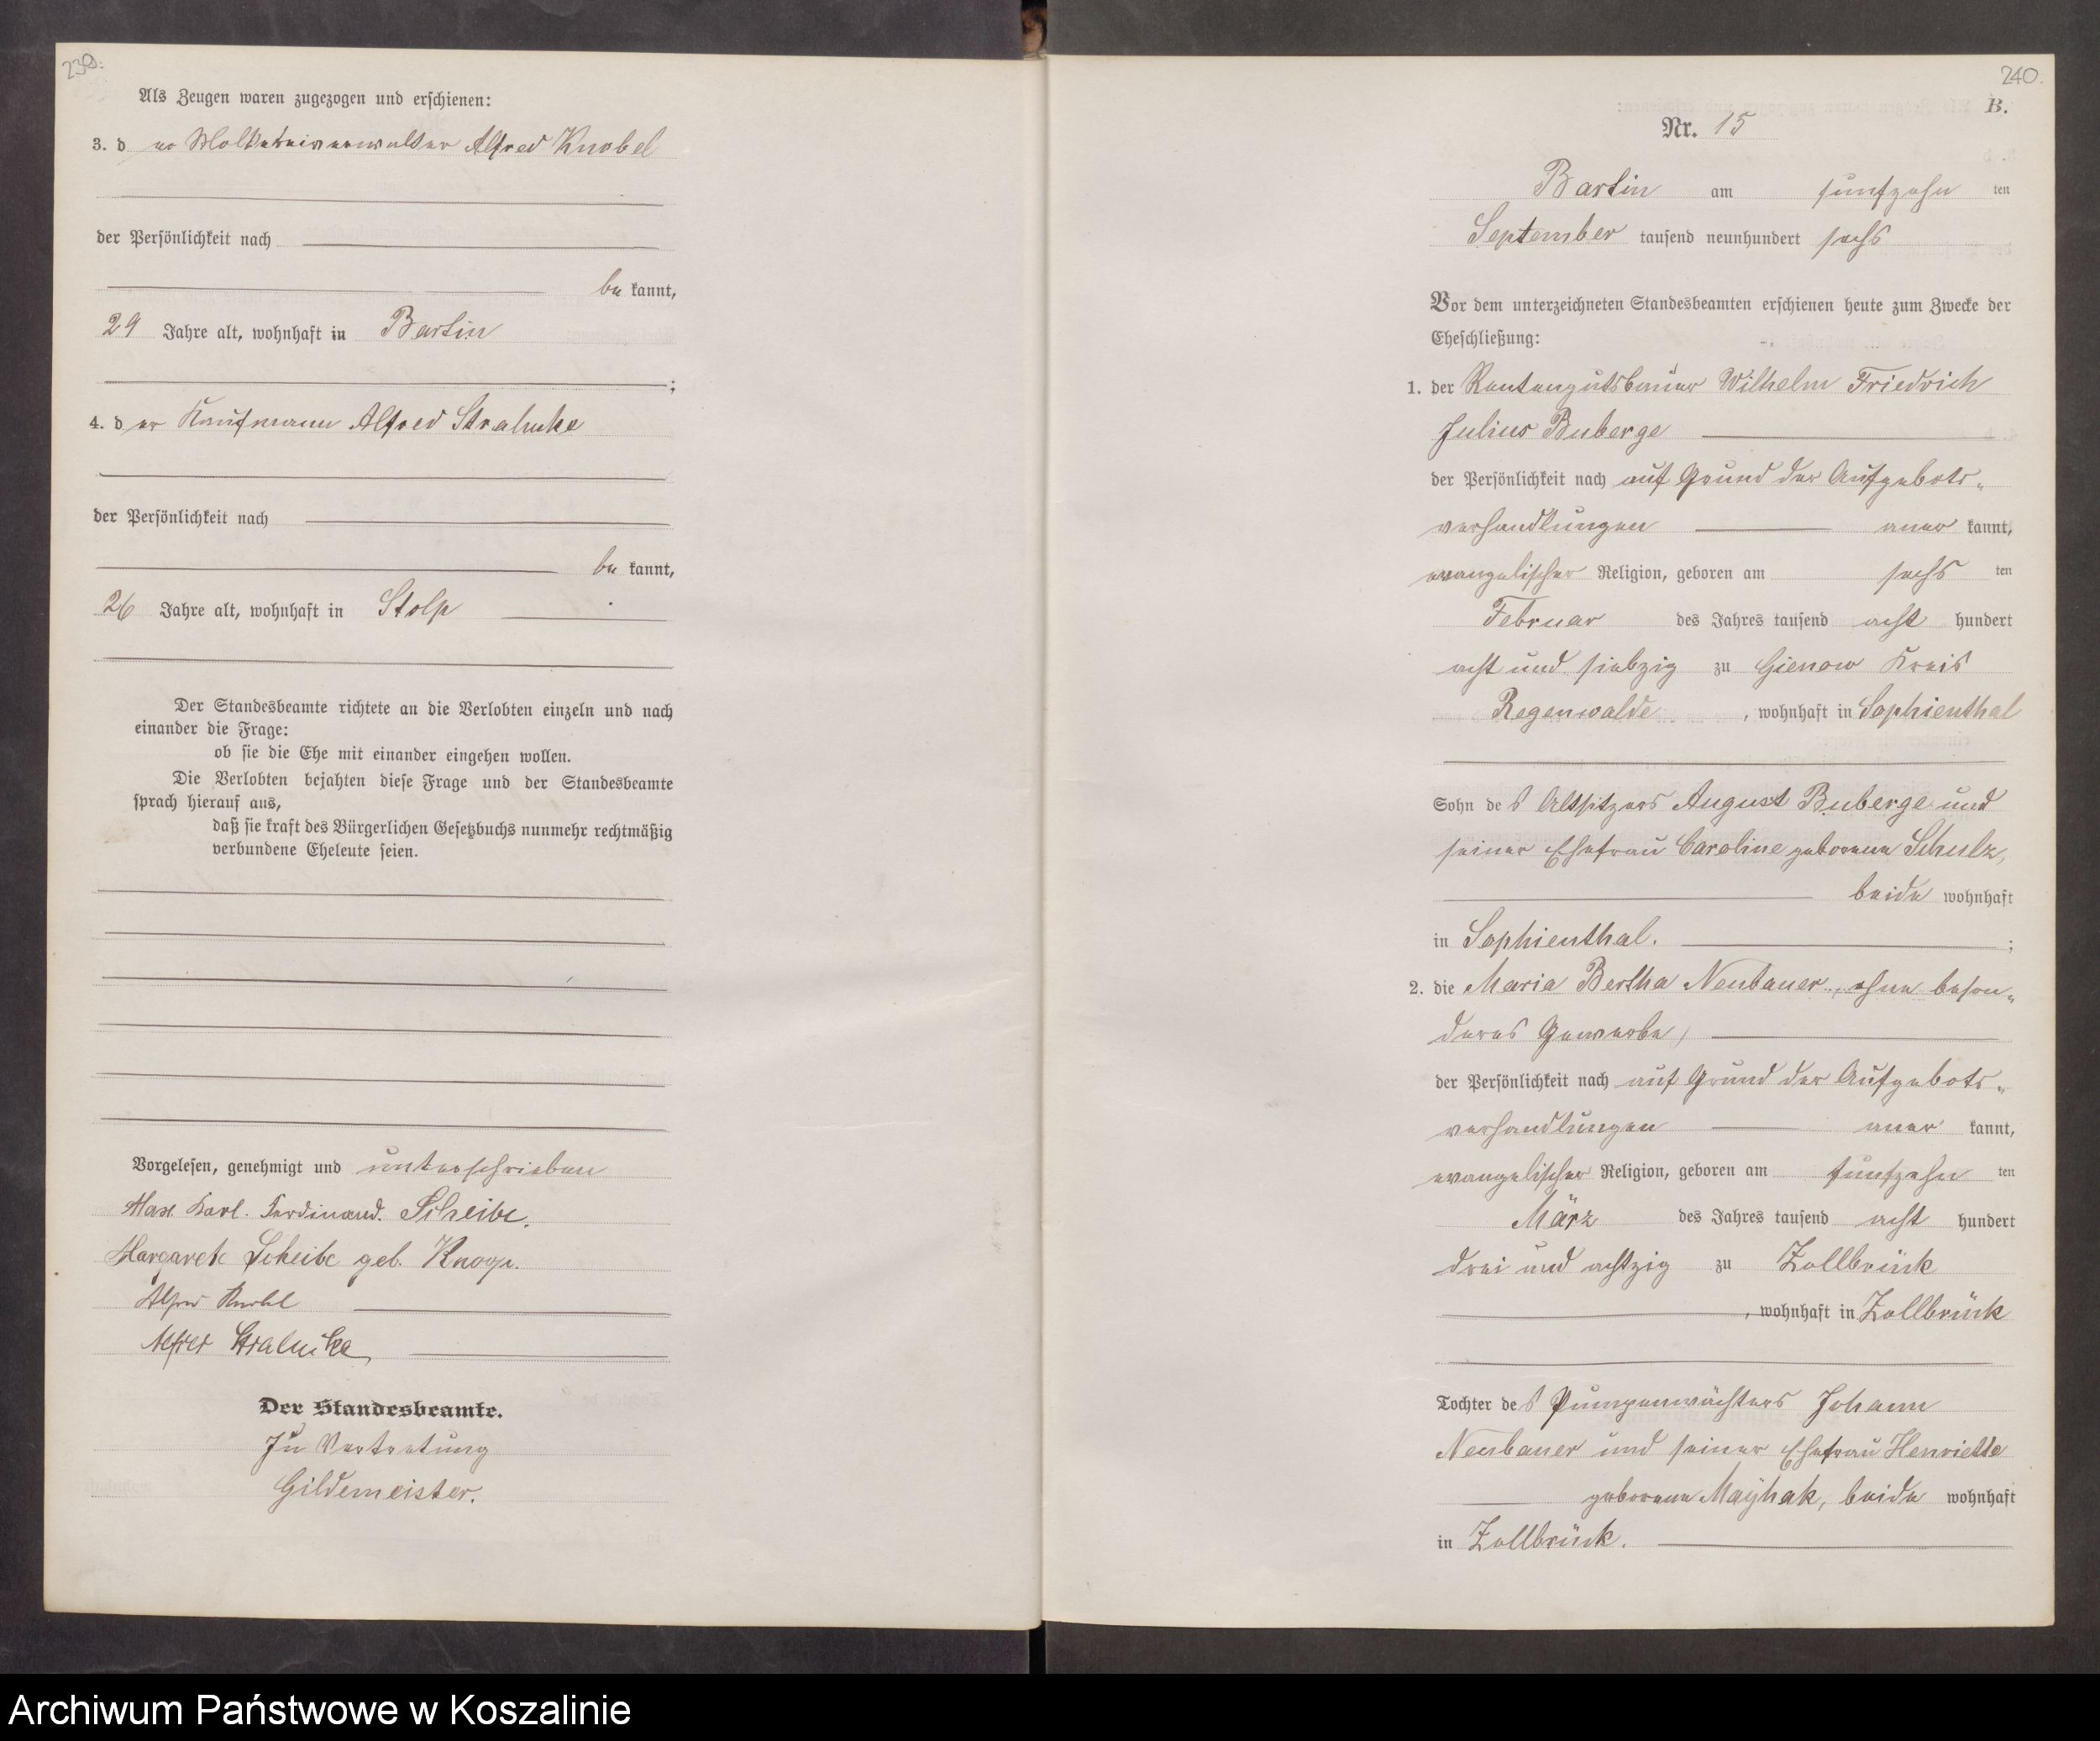 239.
Als Zeugen waren zugezogen und erschienen:
3. d er Molkereiverwalter Alfred Knobel
der Persönlichkeit nach
be kannt,
29 Jahre alt, wohnhaft in Bartin
;
4. d er Kaufmann Alfred Strahnke
der Persönlichkeit nach
be kannt,
26 Jahre alt, wohnhaft in Stolp
Der Standesbeamte richtete an die Verlobten einzeln und nach
einander die Frage:
ob sie die Ehe mit einander eingehen wollen.
Die Verlobten bejahten diese Frage und der Standesbeamte
sprach hierauf aus,
daß sie kraft des Bürgerlichen Gesetzbuchs nunmehr rechtmäßig
verbundene Eheleute seien.
Vorgelesen, genehmigt und unterschrieben
Max Karl. Ferdinand. Scheibe.
Margarete Scheibe geb.
Alfred Knobel
Alfred Strahnke
Der Standesbeamte.
In Vertretung
Gildemeister.
240.
B.
Nr. 15
Bartin am fünfzehn ten
September tausend neunhundert sechs
Vor dem unterzeichneten Standesbeamten erschienen heute zum Zwecke der
Eheschließung:
1. der Rentengutsbauer Wilhelm Friedrich
Julius Buberge
der Persönlichkeit nach auf Grund der Aufgebots-
verhandlungen aner kannt,
evangelischer Religion, geboren am sechs ten
Februar des Jahres tausend acht hundert
acht und siebzig zu Gienow Kreis
Regenwalde, wohnhaft in Sophienthal
Sohn de s Altsitzers August Buberge und
seiner Ehefrau Caroline geborene Schulz,
beide wohnhaft
in Sophienthal. ;
2. die Maria Bertha Neubauer, ohne beson-
deres Gewerbe,
der Persönlichkeit nach auf Grund der Aufgebots-
verhandlungen aner kannt,
evangelischer Religion, geboren am fünfzehn ten
März des Jahres tausend acht hundert
drei und achtzig zu Zollbrück
, wohnhaft in Zollbrück
Tochter de s Pumpenwächters Johann
Neubauer und seiner Ehefrau Henriette
geborene Mayhak, beide wohnhaft
in Zollbrück.
Archiwum Państwowe w Koszalinie